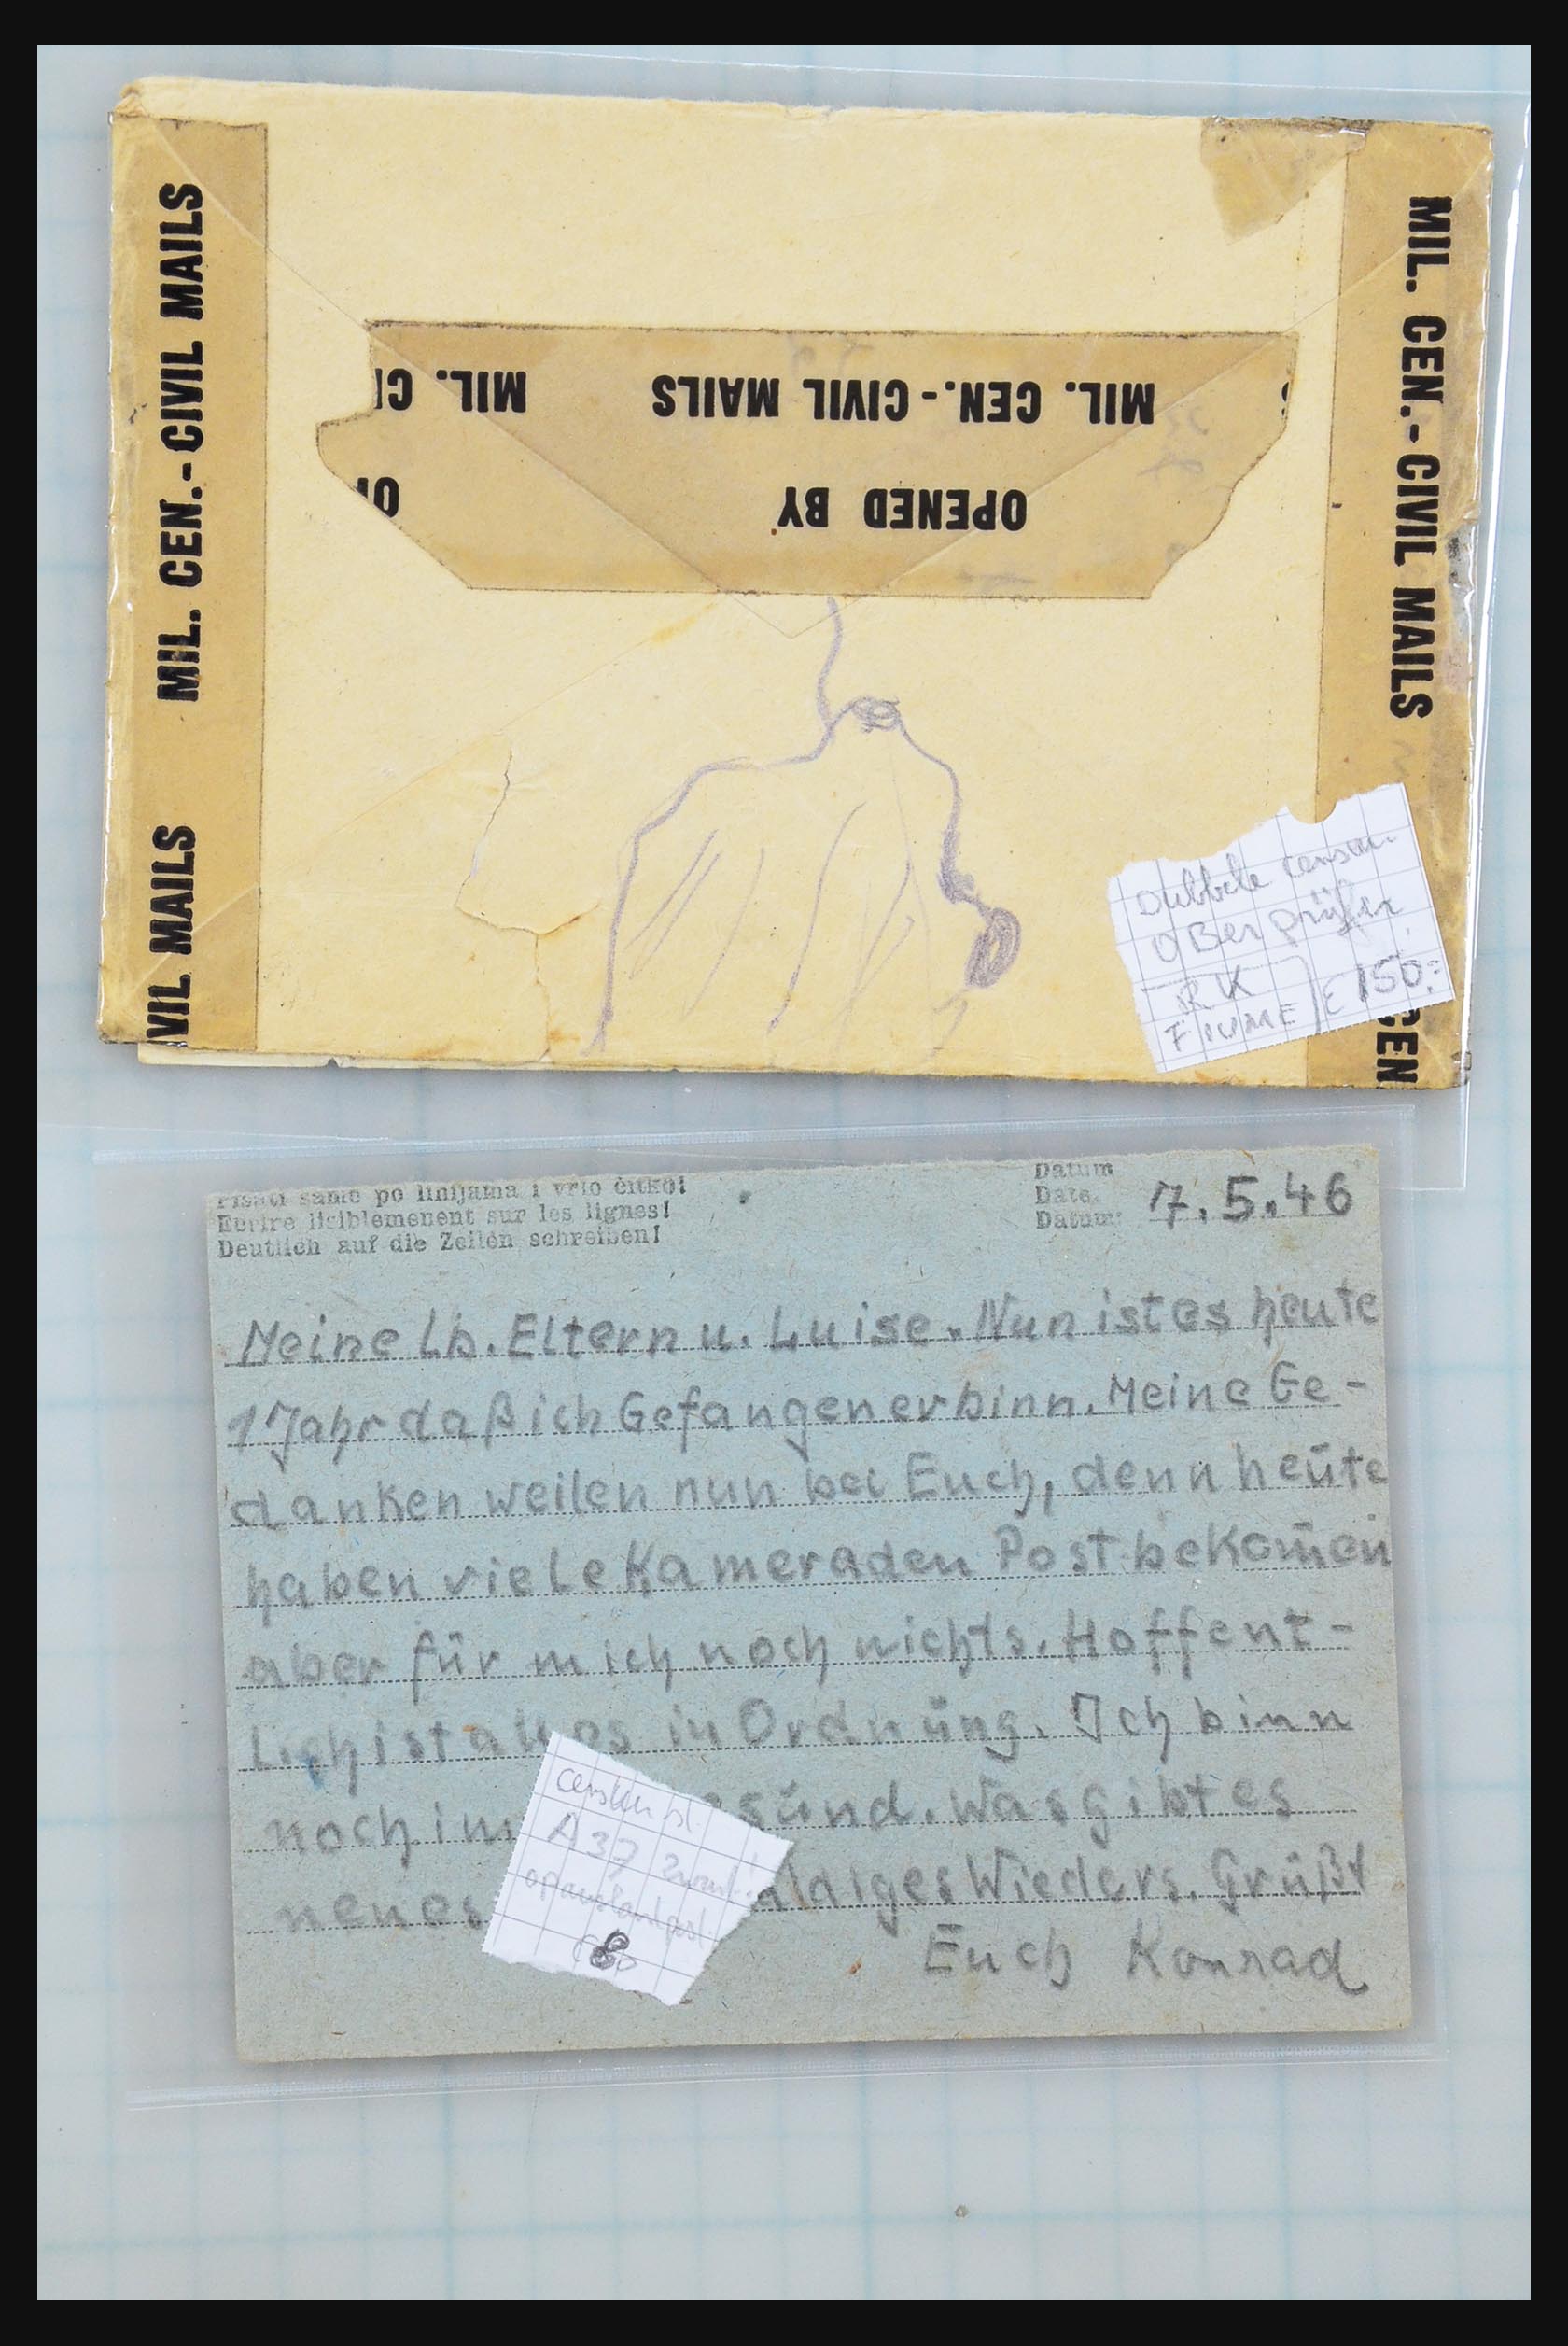 MIL. CEN.-CIVIL MAILS
VIL MAILS
MIL. CEN.-CIVIL MAILS
CEN
MIL. CEN.-CIVIL MAILS
MIL. CE
OPENED BY
OP
Dubbele censuur
OBerprüfer
RK
FIUME
€ 150.=
Pisati samo po linijama i vrlo čitko!
Ecrire lisiblemenent sur les lignes!
Deutlich auf die Zeilen schreiben!
Datum
Date.
Datum: 7.5.46
Meine Lb. Eltern u. Luise. Nun ist es heute
1 Jahr daß ich Gefangener binn. Meine Ge-
danken weilen nun bei Euch, denn heute
haben viele Kameraden Post bekom̄en
aber für mich noch nichts. Hoffent-
lich ist alles in Ordnung. Ich binn
noch im sund. Was gibt es
neues aldiges Wieders. Grüßt
Euch Konrad
censuur st.
A 37
8